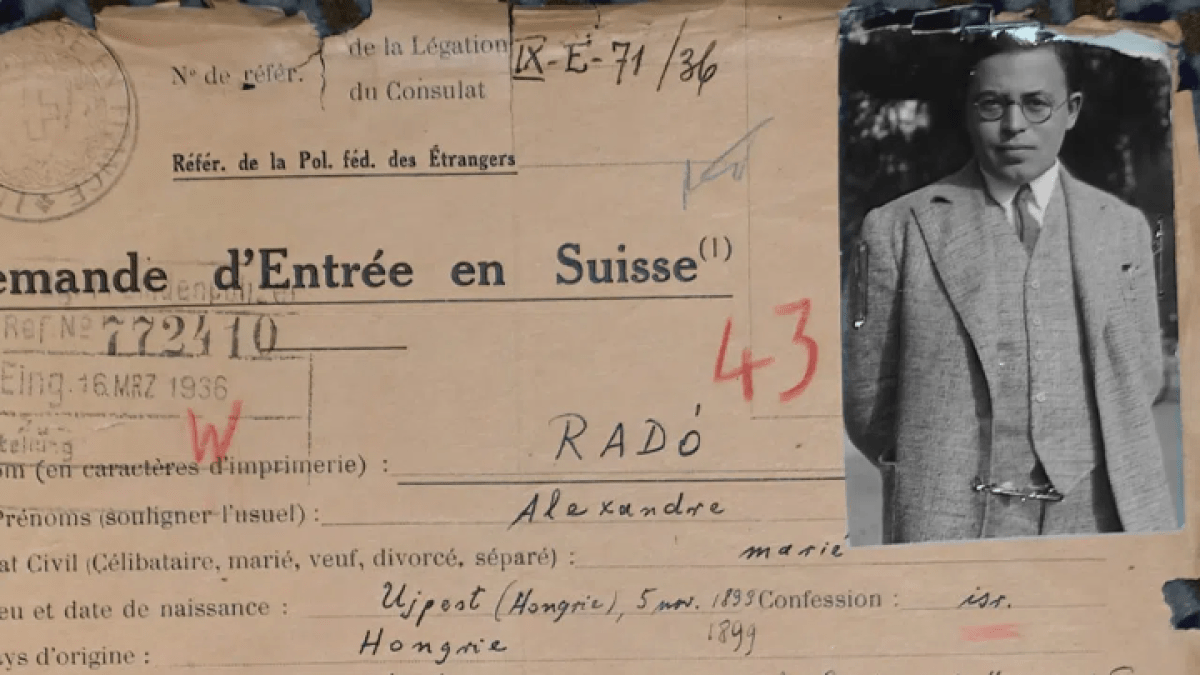 de la Légation
N° de référ.
du Consulat
IX-E-71/36
Référ. de la Pol. féd. des Étrangers
emande d'Entrée en Suisse(1)
Ref Nº 772410
43
Eing. 16. MRZ 1936
W
RADÓ
om (en caractères d'imprimerie) :
Prénoms (souligner l'usuel) : Alexandre
at Civil (Célibataire, marié, veuf, divorcé, séparé) : marié
eu et date de naissance : Ujpest (Hongrie), 5 nov. 1899 Confession : isr.
1899
ys d'origine : Hongrie